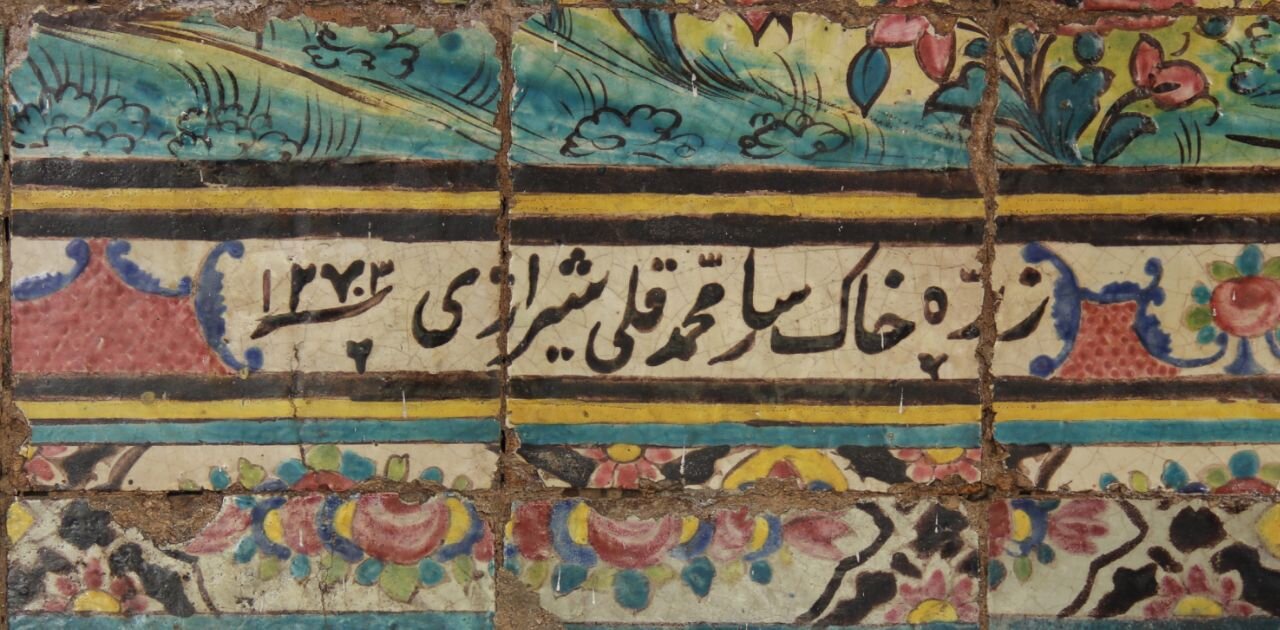 زرّه خاک سار محمّد قلی شیرازی سنه ۱۲۷۳